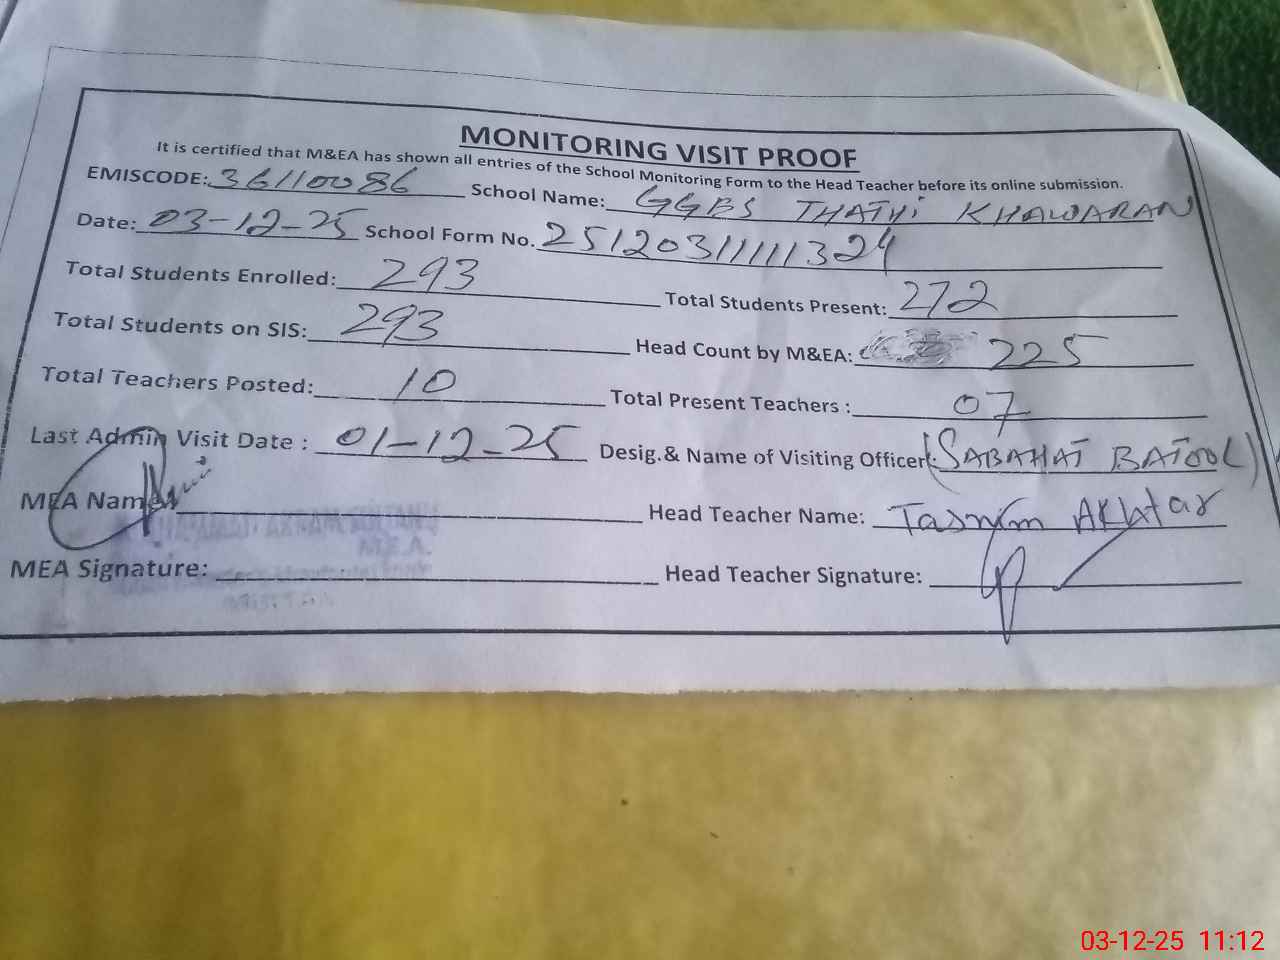 MONITORING VISIT PROOF
It is certified that M&EA has shown all entries of the School Monitoring Form to the Head Teacher before its online submission.
EMISCODE: 36110086 School Name: GGBS THATHI KHAWARAN
Date: 03-12-25 School Form No. 25120311111324
Total Students Enrolled: 293 Total Students Present: 272
Total Students on SIS: 293 Head Count by M&EA: 225
Total Teachers Posted: 10 Total Present Teachers : 07
Last Admin Visit Date : 01-12-25 Desig.& Name of Visiting Officer: (SABAHAT BATOOL)
MEA Name: Head Teacher Name: Tasnim Akhtar
M.E.A.
MEA Signature: Head Teacher Signature:
03-12-25 11:12